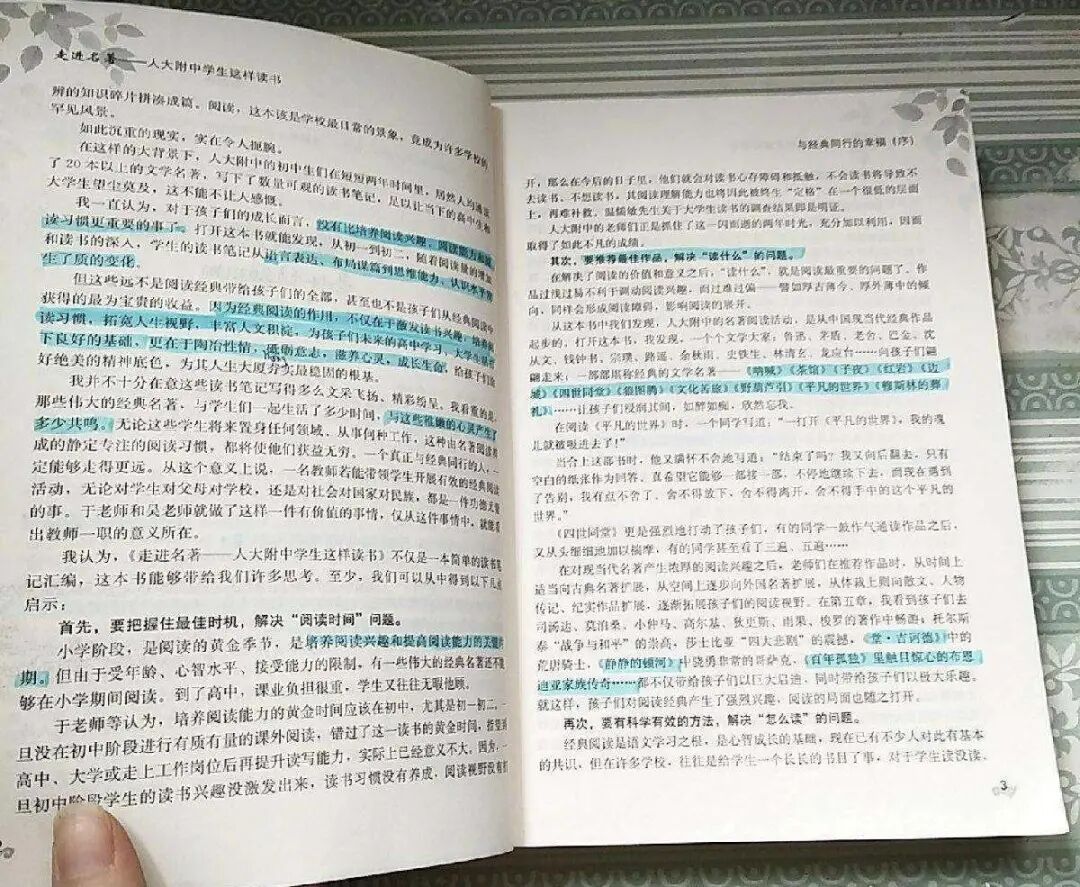 走进名著——人大附中学生这样读书
辨的知识碎片拼凑成篇。阅读，这本该是学校最日常的景象，竟成为许多学校的
罕见风景。
如此沉重的现实，实在令人扼腕。
在这样的大背景下，人大附中的初中生们在短短两年时间里，居然人均通读
了20本以上的文学名著，写下了数量可观的读书笔记，足以让当下的高中生和
大学生望尘莫及，这不能不让人感慨。
我一直认为，对于孩子们的成长而言，没有比培养阅读兴趣、阅读能力和阅
读习惯更重要的事了。打开这本书就能发现，从初一到初二，随着阅读量的增加
和读书的深入，学生的读书笔记从语言表达、布局谋篇到思维能力、认识水平发
生了质的变化。
但这些远不是阅读经典带给孩子们的全部，甚至也不是孩子们从经典阅读中
获得的最为宝贵的收益。因为经典阅读的作用，不仅在于激发读书兴趣，培养阅
读习惯，拓宽人生视野，丰富人文积淀，为孩子们未来的高中学习、大学生活打
下良好的基础，更在于陶冶性情，砥砺意志，滋养心灵，成长生命，给孩子们的
好绝美的精神底色，为其人生大厦夯实最稳固的根基。
我并不十分在意这些读书笔记写得多么文采飞扬、精彩纷呈。我看重的是，
那些伟大的经典名著，与学生们一起生活了多少时间，与这些稚嫩的心灵产生了
多少共鸣。无论这些学生将来置身任何领域、从事何种工作，这种由名著阅读养
成的静定专注的阅读习惯，都将使他们获益无穷。一个真正与经典同行的人，一
定能够走得更远。从这个意义上说，一名教师若能带领学生开展有效的经典阅读
活动，无论对学生对父母对学校，还是对社会对国家对民族，都是一件功德无量
的事。于老师和吴老师就做了这样一件有价值的事情，仅从这件事情中，就能看
出教师一职的意义所在。
我认为，《走进名著——人大附中学生这样读书》不仅是一本简单的读书笔
记汇编，这本书能够带给我们许多思考。至少，我们可以从中得到以下几点
启示：
首先，要把握住最佳时机，解决“阅读时间”问题。
小学阶段，是阅读的黄金季节，是培养阅读兴趣和提高阅读能力的关键
期。但由于受年龄、心智水平、接受能力的限制，有一些伟大的经典名著还不能
够在小学期间阅读。到了高中，课业负担很重，学生又往往无暇他顾。
于老师等认为，培养阅读能力的黄金时间应该在初中，尤其是初一初二，一
旦没在初中阶段进行有质有量的课外阅读，错过了这一读书的黄金时间，指望到
高中、大学或走上工作岗位后再提升读写能力，实际上已经意义不大。因为，一
旦初中阶段学生的读书兴趣没激发出来，读书习惯没有养成，阅读视野没有打
与经典同行的幸福（序）
开，那么在今后的日子里，他们就会对读书心存障碍和抵触，不会读书将导致不
去读书、不想读书，其阅读理解能力也将因此被终生“定格”在一个很低的层面
上，再难补救。温儒敏先生关于大学生读书的调查结果即是明证。
人大附中的老师们正是抓住了这一闪而逝的两年时光，充分加以利用，因而
取得了如此不凡的成绩。
其次，要推荐最佳作品，解决“读什么”的问题。
在解决了阅读的价值和意义之后，“读什么”，就是阅读最重要的问题了。作
品过浅过易不利于调动阅读兴趣，而过难过偏——譬如厚古薄今、厚外薄中的倾
向，同样会形成阅读障碍，影响阅读的展开。
从这本书中我们发现，人大附中的名著阅读活动，是从中国现当代经典作品
起步的。打开这本书，我发现，一个个文学大家：鲁迅、茅盾、老舍、巴金、沈
从文、钱钟书、宗璞、路遥、余秋雨、史铁生、林清玄、龙应台……向孩子们翩
翩走来；一部部堪称经典的文学名著——《呐喊》《茶馆》《子夜》《红岩》《边
城》《四世同堂》《狼图腾》《文化苦旅》《野葫芦引》《平凡的世界》《穆斯林的葬
礼》……让孩子们浸润其间，如醉如痴，欣然忘我。
在阅读《平凡的世界》时，一个同学写道：“一打开《平凡的世界》，我的魂
儿就被吸进去了！”
当合上这部书时，他又满怀不舍地写道：“结束了吗？我又向后翻去，只有
空白的纸张作为回答。真希望它能够一部接一部，不停地继续下去，而现在遇到
了告别，我有点不舍了。舍不得放下，舍不得离开，舍不得手中的这个平凡的
世界。”
《四世同堂》更是强烈地打动了孩子们，有的同学一鼓作气通读作品之后，
又从头细细地加以揣摩，有的同学甚至看了三遍、五遍……
在对现当代名著产生浓厚的阅读兴趣之后，老师们在推荐作品时，从时间上
适当向古典名著扩展，从空间上逐步向外国名著扩展，从体裁上则向散文、人物
传记、纪实作品扩展，逐渐拓展孩子们的阅读视野。在第五章，我看到孩子们去
司汤达、莫泊桑、小仲马、高尔基、狄更斯、雨果、梭罗的著作中畅游；托尔斯
泰“战争与和平”的崇高，莎士比亚“四大悲剧”的震撼，《堂·吉诃德》中的
荒唐骑士，《静静的顿河》中骁勇非常的哥萨克，《百年孤独》里触目惊心的布恩
迪亚家族传奇……都不仅带给孩子们以巨大启迪，同时带给孩子们以极大乐趣。
就这样，孩子们对阅读经典产生了强烈兴趣，阅读的局面也随之打开。
再次，要有科学有效的方法，解决“怎么读”的问题。
经典阅读是语文学习之根，是心智成长的基础，现在已有不少人对此有基本
的共识，但在许多学校，往往是给学生一个长长的书目了事，对于学生读没读、
3